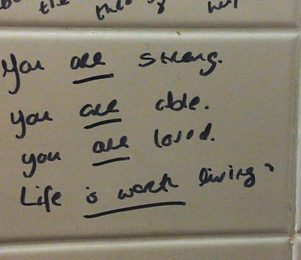 the
You are strong.
you are able.
you are loved.
Life is worth living.